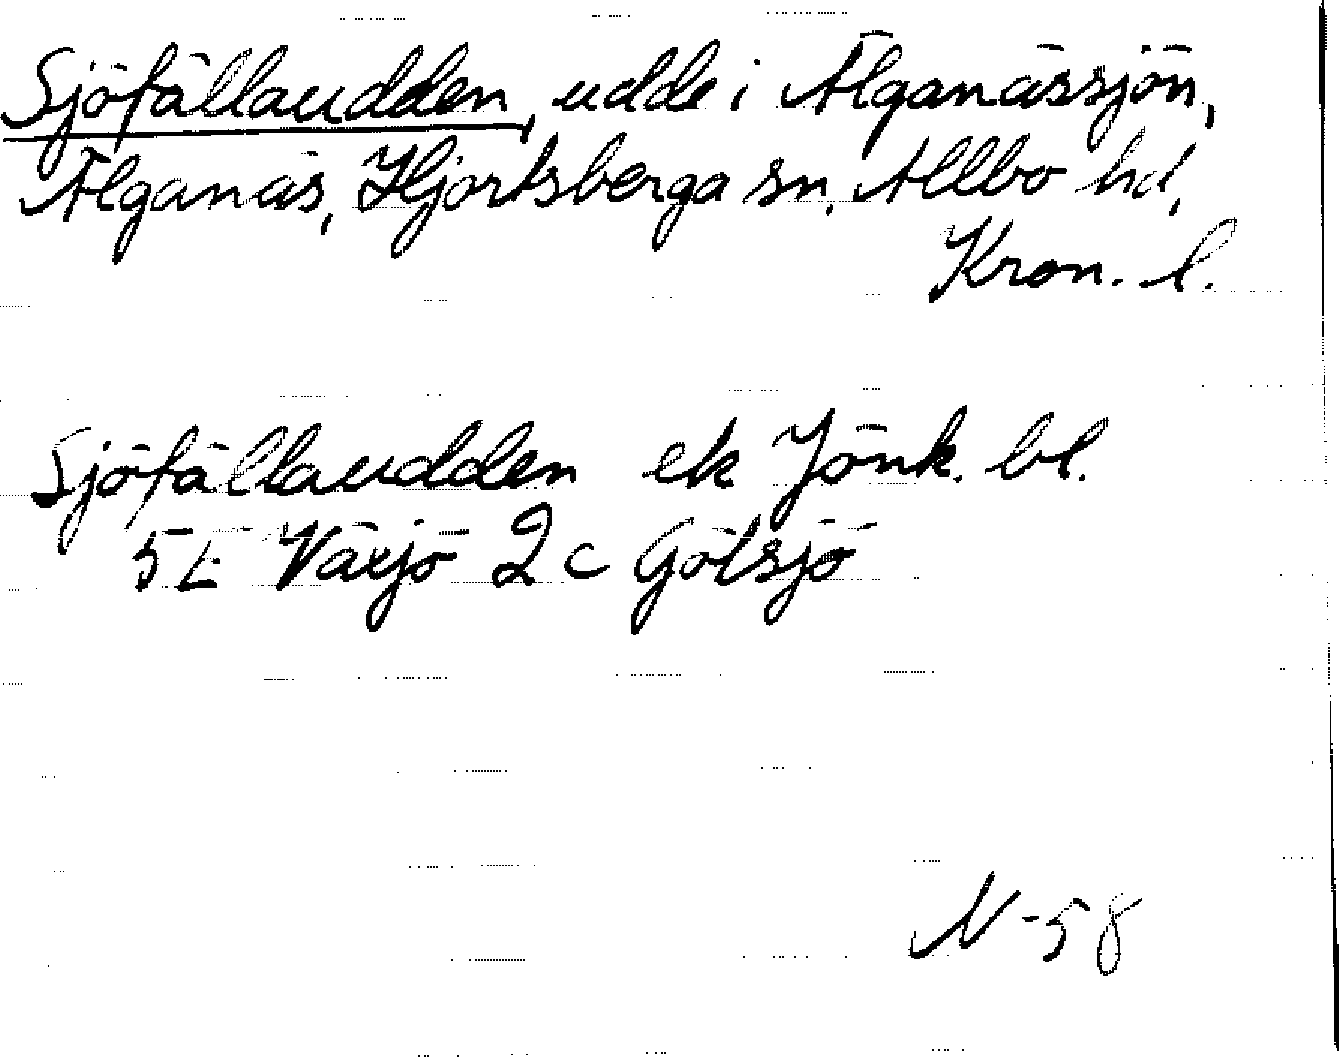 Sjöfällaudden, udde i Älganässjön,
Älganäs, Hjortsberga sn. Allbo hd,
Kron. l.
Sjöfällaudden ek Jönk. bl.
5E Växjö 2c Götsjö
N-58